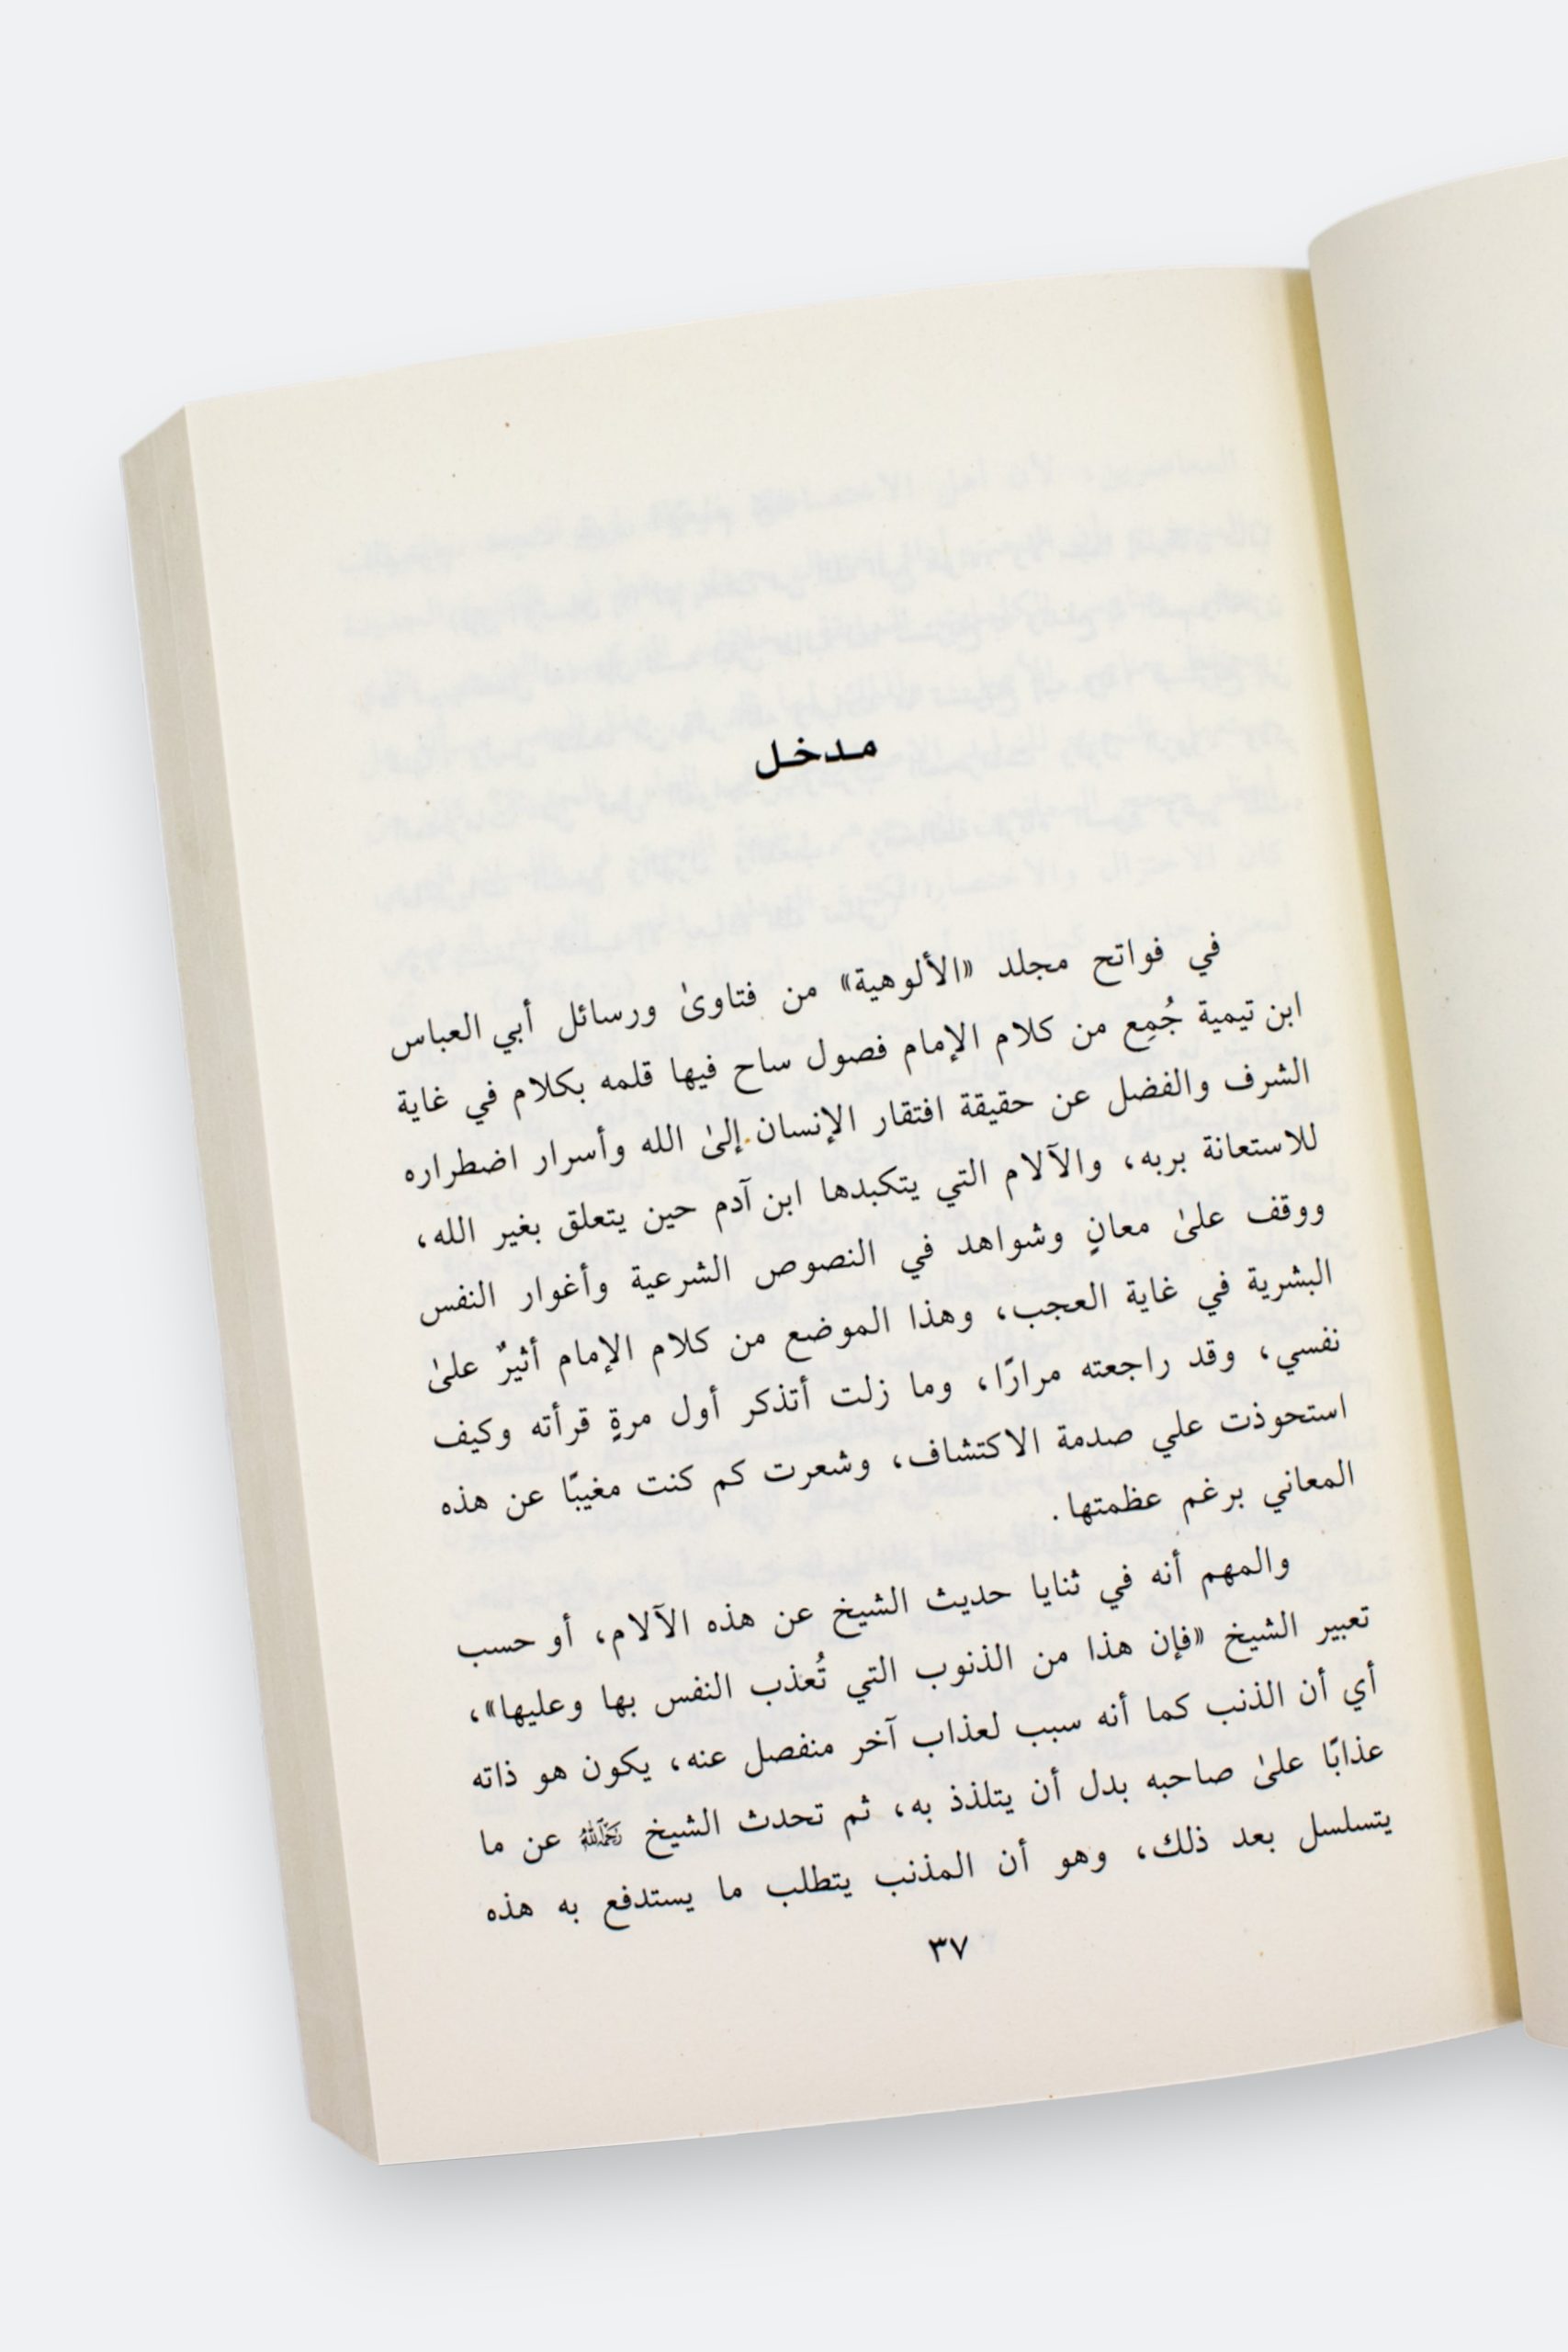 مدخل
في فواتح مجلد «الألوهية» من فتاوىٰ ورسائل أبي العباس
ابن تيمية جُمِع من كلام الإمام فصول ساح فيها قلمه بكلام في غاية
الشرف والفضل عن حقيقة افتقار الإنسان إلىٰ الله وأسرار اضطراره
للاستعانة بربه، والآلام التي يتكبدها ابن آدم حين يتعلق بغير الله،
ووقف علىٰ معانٍ وشواهد في النصوص الشرعية وأغوار النفس
البشرية في غاية العجب، وهذا الموضع من كلام الإمام أثيرٌ علىٰ
نفسي، وقد راجعته مرارًا، وما زلت أتذكر أول مرةٍ قرأته وكيف
استحوذت علي صدمة الاكتشاف، وشعرت كم كنت مغيبًا عن هذه
المعاني برغم عظمتها.
والمهم أنه في ثنايا حديث الشيخ عن هذه الآلام، أو حسب
تعبير الشيخ «فإن هذا من الذنوب التي تُعذب النفس بها وعليها»،
أي أن الذنب كما أنه سبب لعذاب آخر منفصل عنه، يكون هو ذاته
عذابًا علىٰ صاحبه بدل أن يتلذذ به، ثم تحدث الشيخ رحمه الله عن ما
يتسلسل بعد ذلك، وهو أن المذنب يتطلب ما يستدفع به هذه
٣٧